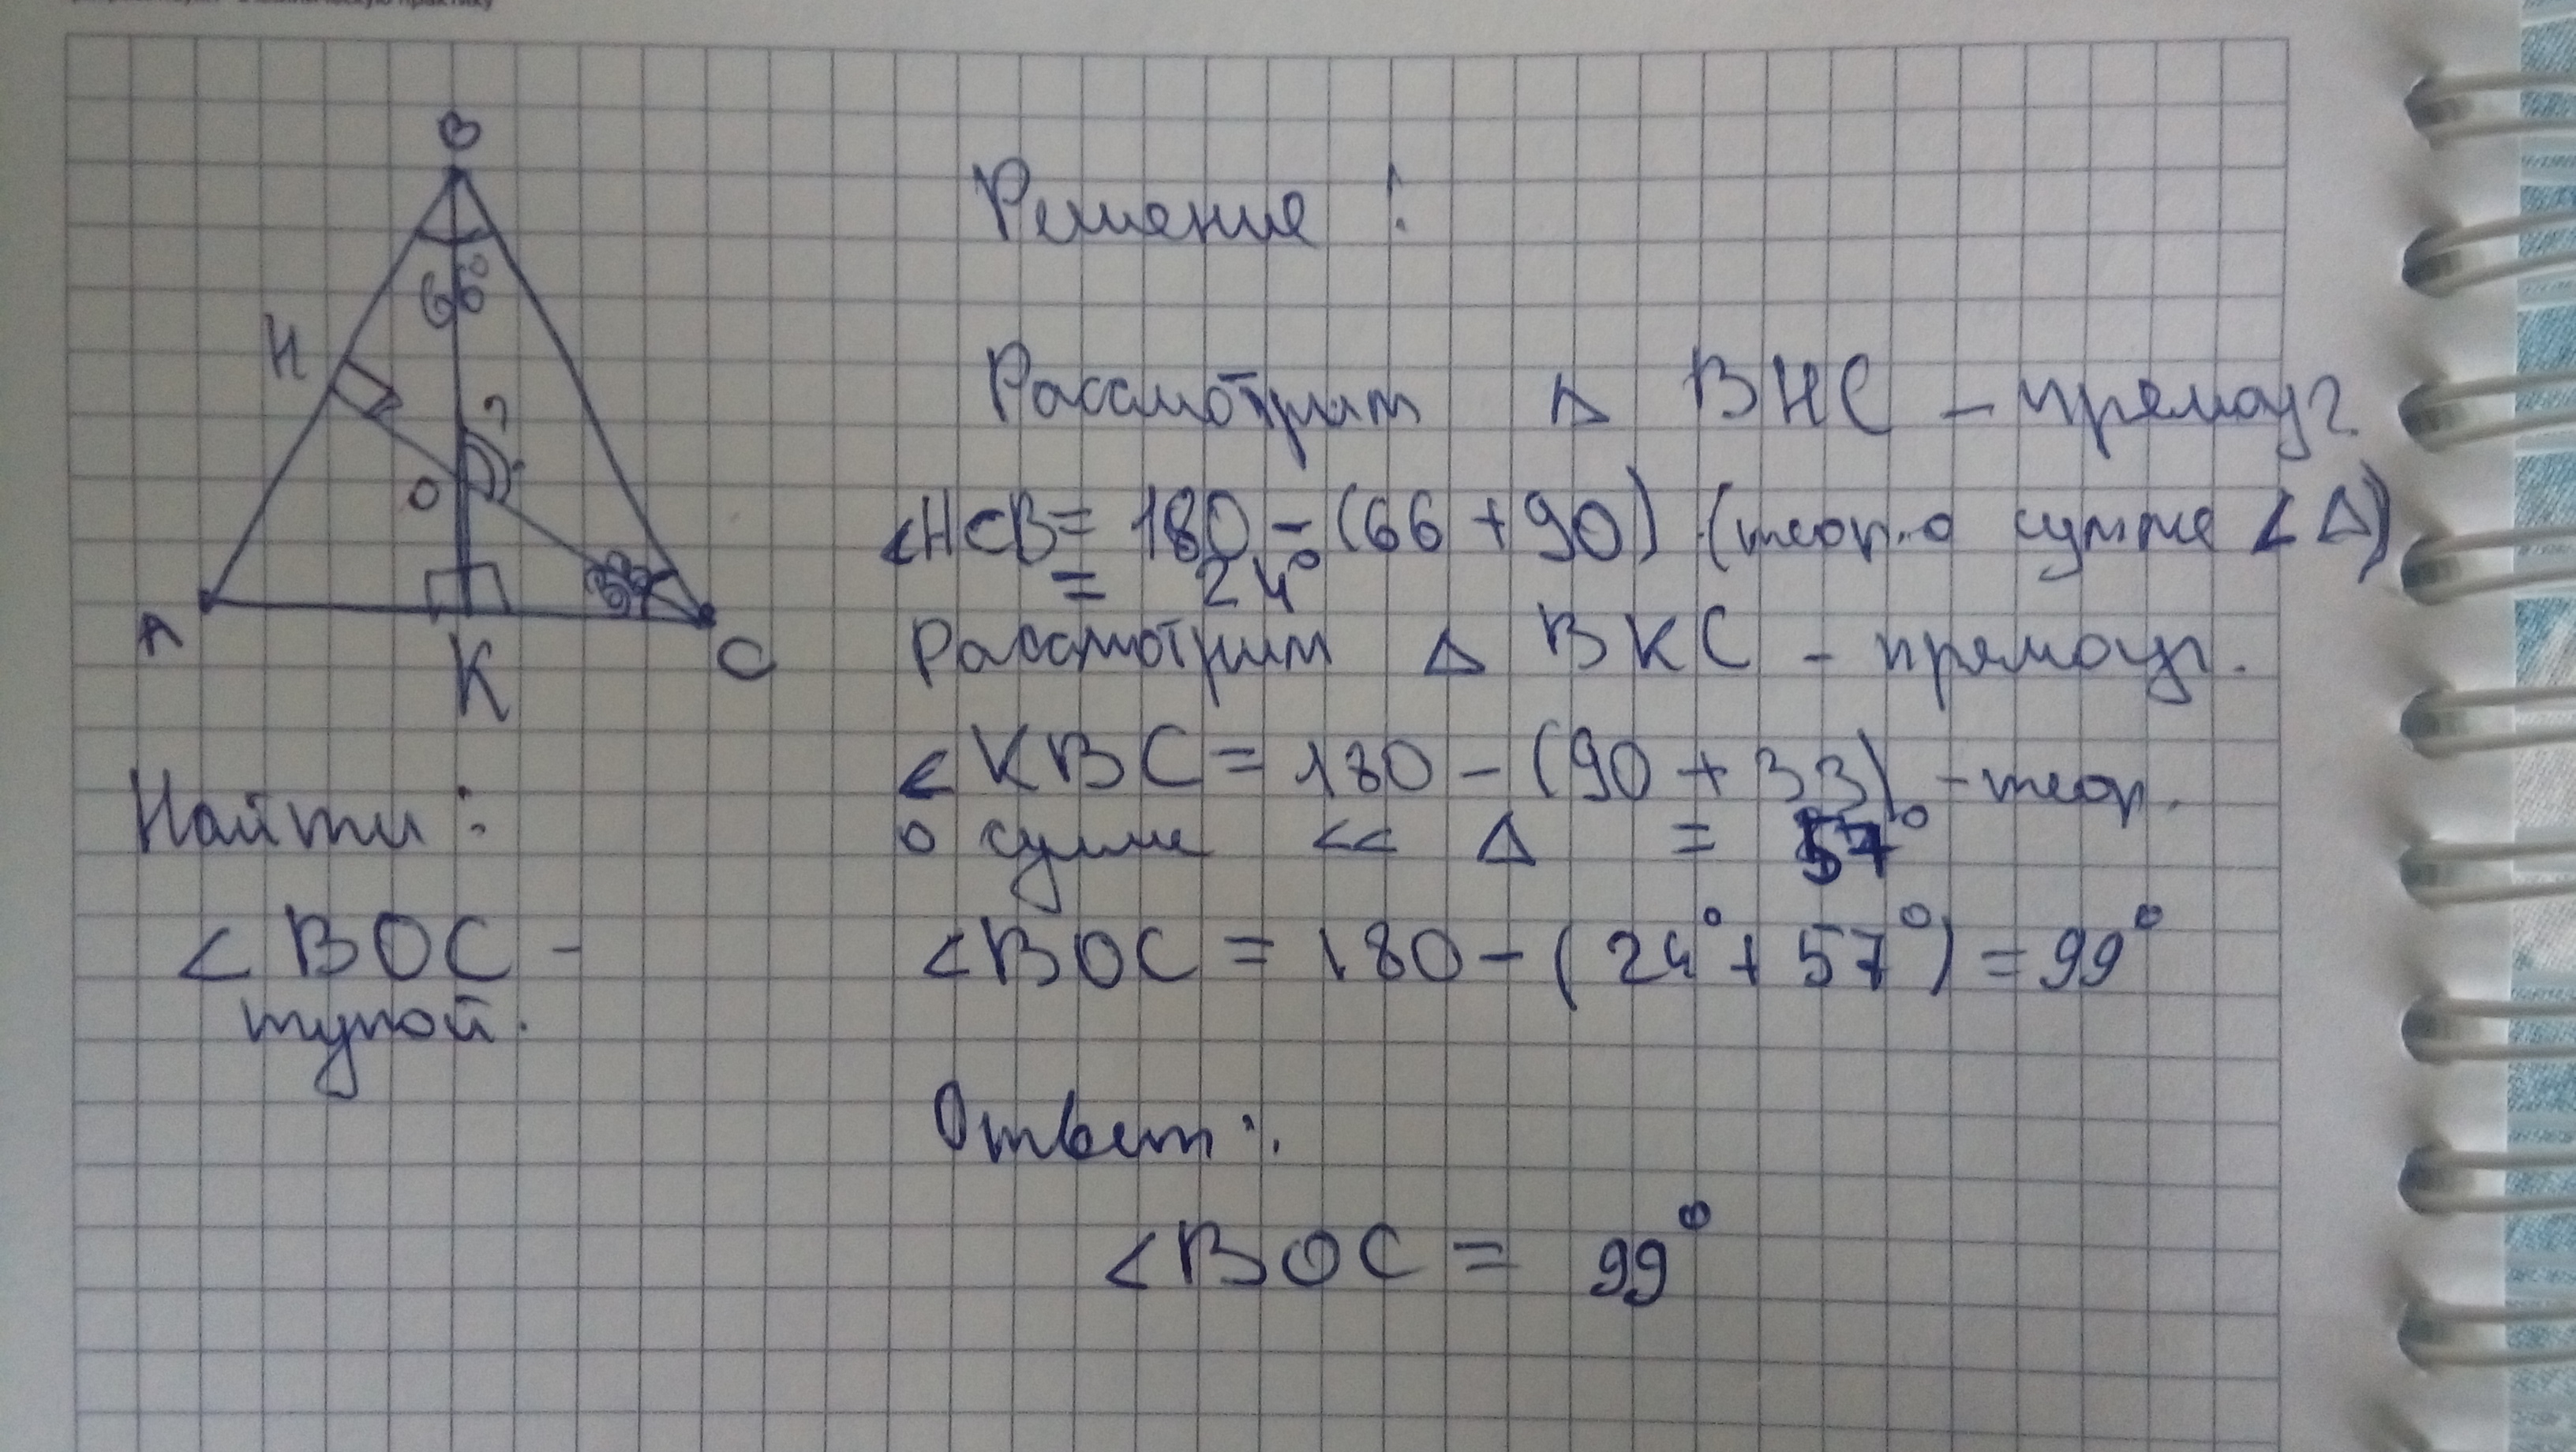 B
66°
H
?
O
33
A
K
C
Найти:
∠BOC -
тупой.
Решение:
Рассмотрим Δ BHC - прямоуг.
∠HCB = 180 - (66 + 90) (теор. о сумме ∠ Δ)
= 24°
Рассмотрим Δ BKC - прямоуг.
∠KBC = 180 - (90 + 33) - теор.
о сумме ∠∠ Δ = 57°
∠BOC = 180 - (24° + 57°) = 99°
Ответ:
∠BOC = 99°